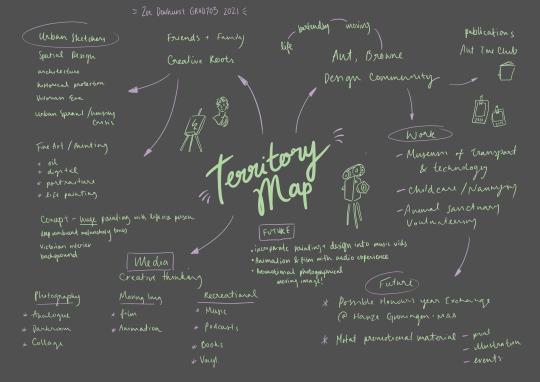 Zoe Dewhurst GRAD703 2021
Urban Sketchers
Spatial Design
architecture
historical protection
Victorian Era
Urban Sprawl / housing
crisis
Fine Art / Painting
+ oil
+ digital
+ portraiture
+ life painting
Concept - huge painting with life size person
melancholy tones
Victorian interior
background
Friends + Family
Creative Roots
life
yesterday
moving
Aut, Browne
Design Community
publications
Aut Zine Club
Work
- Museum of Transport
& technology
- Childcare / Nannying
- Animal sanctuary
Volunteering
Territory
Map
FUTURE
• incorporate painting + design into music vids
• Animation & film with audio experience
• Promotional photographical
moving image!
Media
Creative thinking
Photography
* Analogue
* Darkroom
* Collage
Moving Img
* film
* Animation
Recreational
* Music
* Podcasts
* Books
* Vinyl
Future
* Possible Honours year Exchange
@ Hanze Groningen
* Motat promotional material - print
- illustration
- events